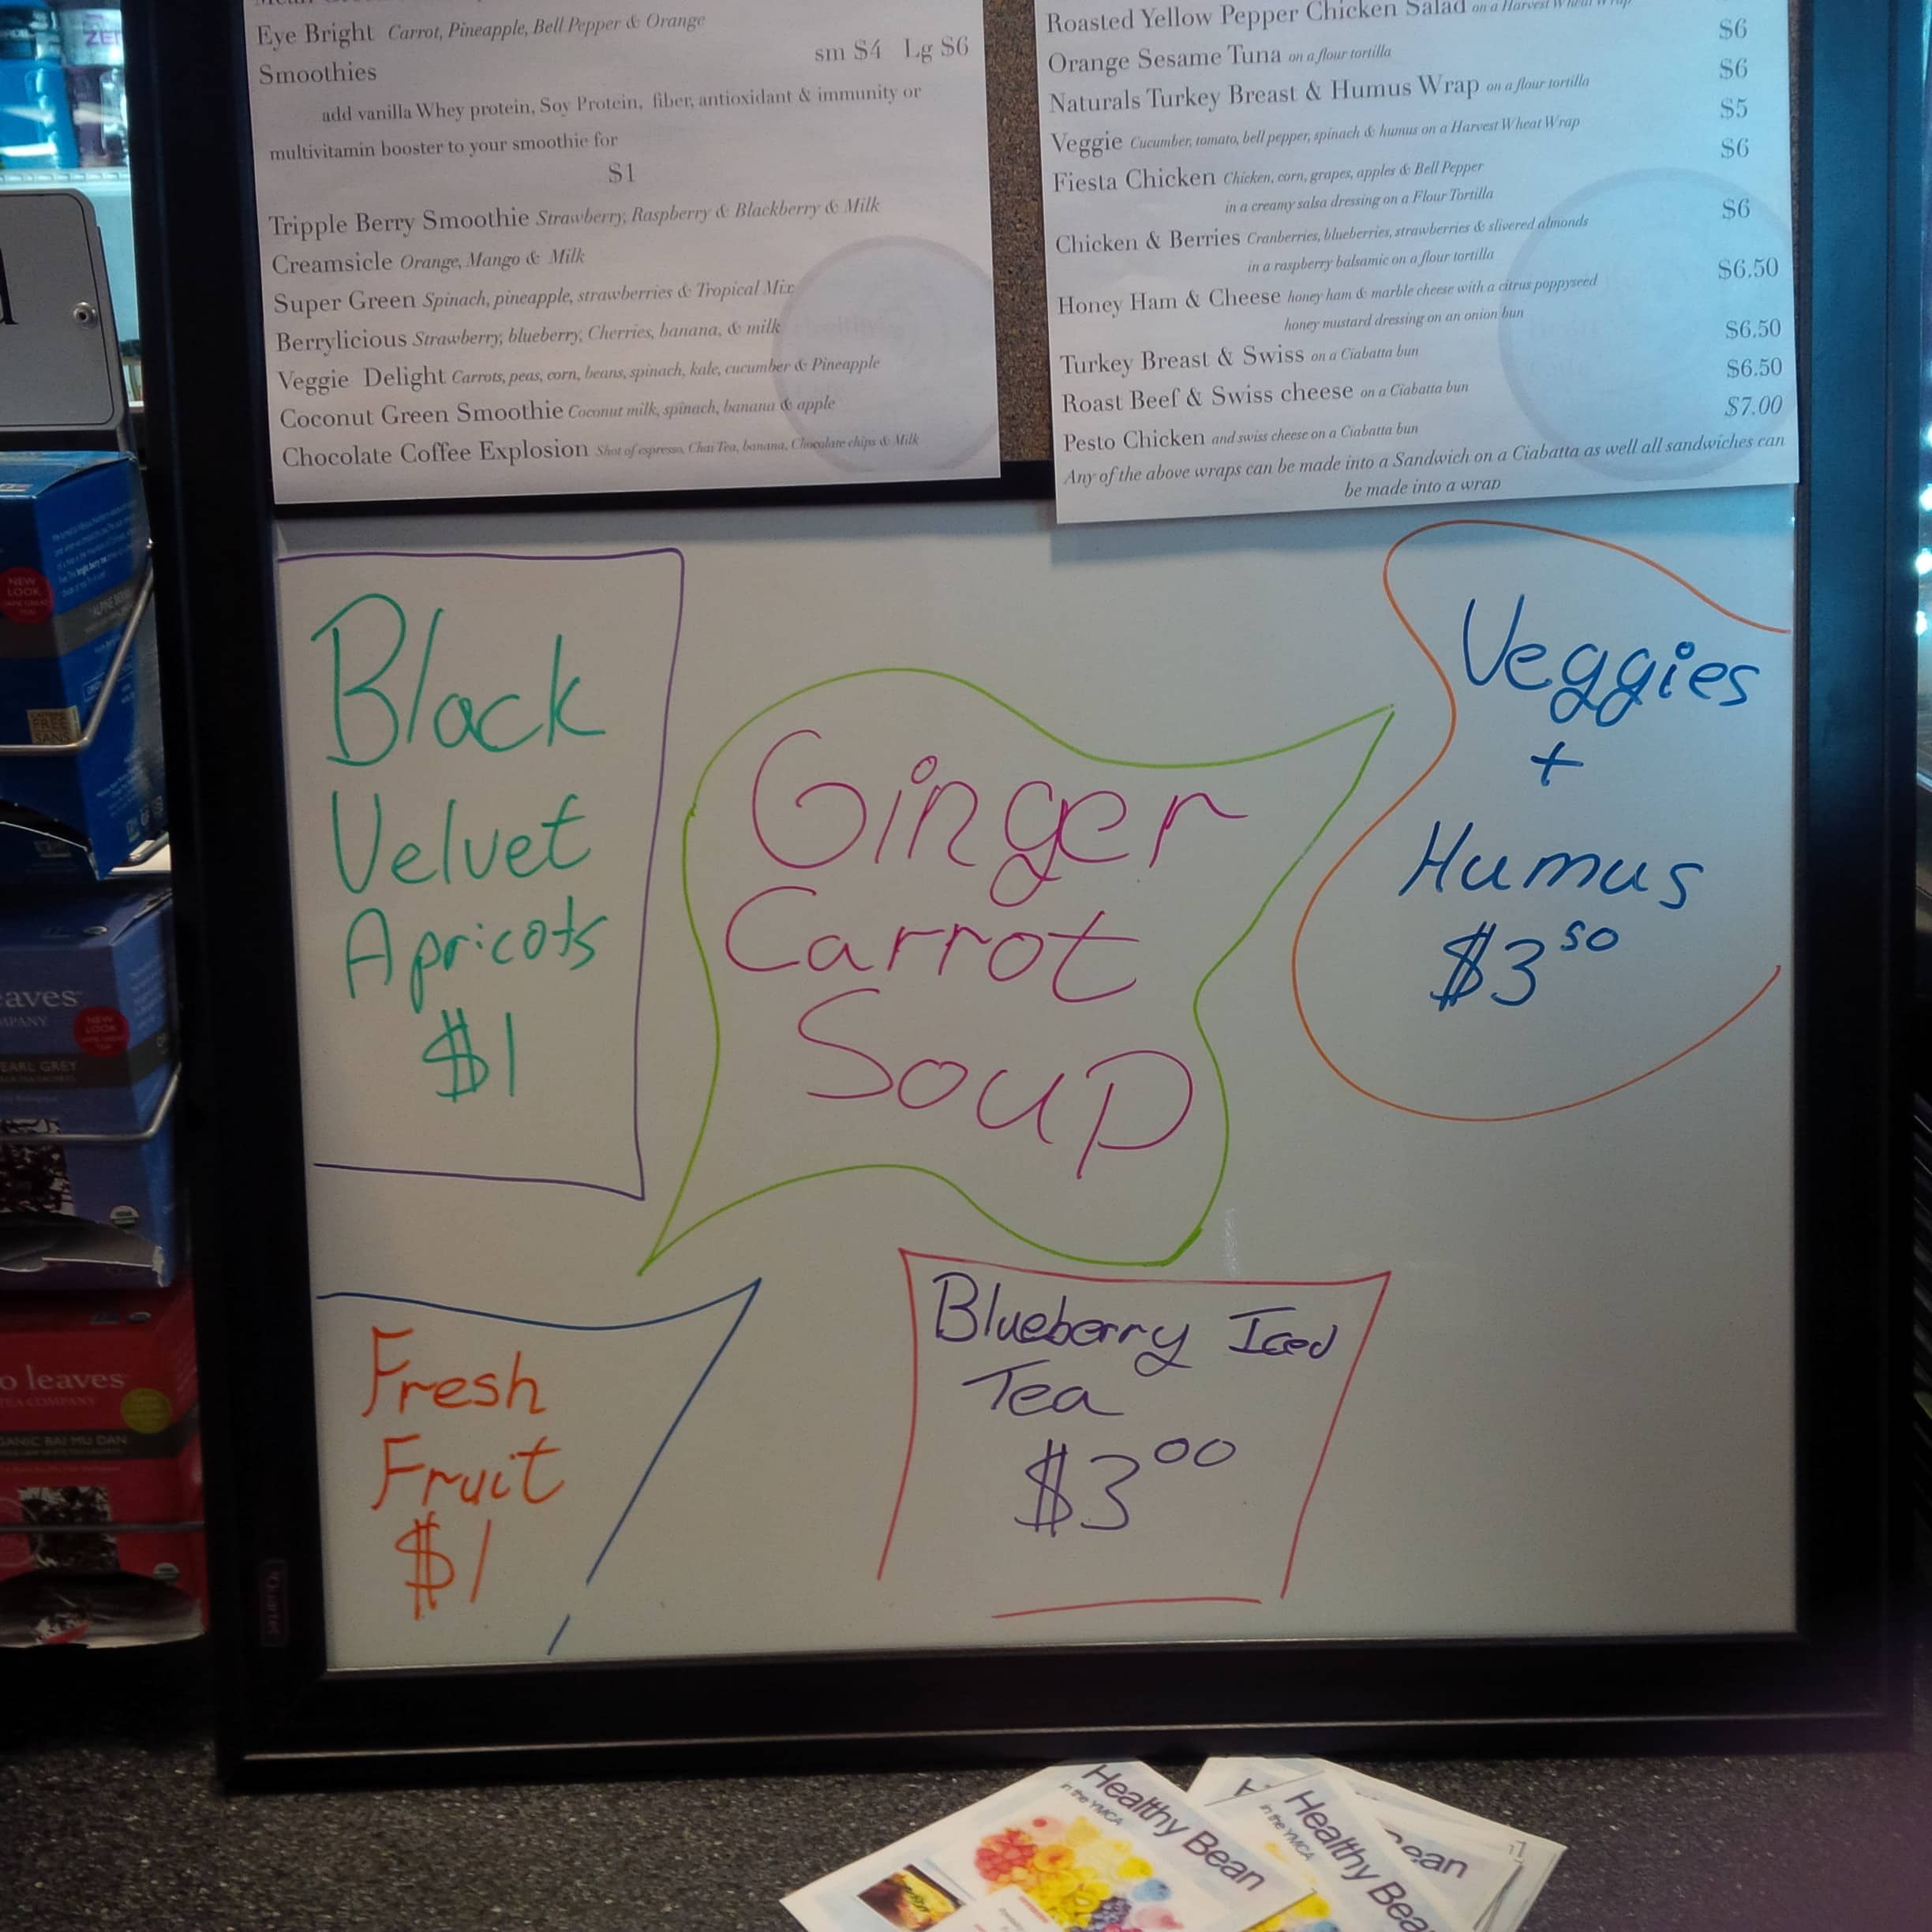 Eye Bright Carrot, Pineapple, Bell Pepper & Orange
Smoothies sm $4 Lg $6
add vanilla Whey protein, Soy Protein, fiber, antioxidant & immunity or
multivitamin booster to your smoothie for
$1
Tripple Berry Smoothie Strawberry, Raspberry & Blackberry & Milk
Creamsicle Orange, Mango & Milk
Super Green Spinach, pineapple, strawberries & Tropical Mix
Berrylicious Strawberry, blueberry, Cherries, banana, & milk
Veggie Delight Carrots, peas, corn, beans, spinach, kale, cucumber & Pineapple
Coconut Green Smoothie Coconut milk, spinach, banana & apple
Chocolate Coffee Explosion Shot of espresso, Chai Tea, banana, Chocolate chips & Milk
Roasted Yellow Pepper Chicken Salad on a Harvest Wheat Wrap
$6
Orange Sesame Tuna on a flour tortilla
$6
Naturals Turkey Breast & Humus Wrap on a flour tortilla
$5
Veggie Cucumber, tomato, bell pepper, spinach & humus on a Harvest Wheat Wrap
$6
Fiesta Chicken Chicken, corn, grapes, apples & Bell Pepper
in a creamy salsa dressing on a Flour Tortilla
$6
Chicken & Berries Cranberries, blueberries, strawberries & slivered almonds
in a raspberry balsamic on a flour tortilla
$6.50
Honey Ham & Cheese honey ham & marble cheese with a citrus poppyseed
honey mustard dressing on an onion bun
$6.50
Turkey Breast & Swiss on a Ciabatta bun
$6.50
Roast Beef & Swiss cheese on a Ciabatta bun
$7.00
Pesto Chicken and swiss cheese on a Ciabatta bun
Any of the above wraps can be made into a Sandwich on a Ciabatta as well all sandwiches can
be made into a wrap
Black
Velvet
Apricots
$1
Ginger
Carrot
Soup
Veggies
+
Humus
$3 50
Fresh
Fruit
$1
Blueberry Iced
Tea
$3 00
NEW
LOOK
aves
MPANY
NEW
LOOK
EARL GREY
o leaves
TEA COMPANY
GANIC BAI MU DAN
Quartet
Healthy Bean
in the YMCA
Healthy Bea
in the YMCA
ean